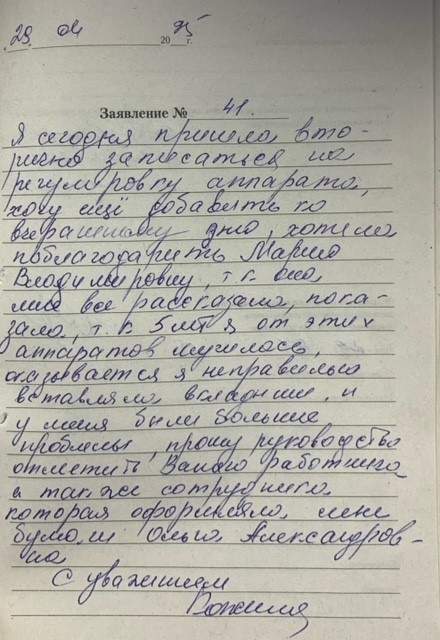 29. 04 2025 г.
Заявление № 41.
Я сегодня пришла вто-
рично записаться на
регулировку аппарата,
хочу ещё добавить ко
вчерашнему дню, хотела
поблагодарить Марию
Владимировну, т.к. она
мне все рассказала, пока-
зала, т.к 5 лет я от этих
аппаратов мучилась,
оказывается я неправильно
вставляла вкладыши, и
у меня были большие
проблемы, прошу руководство
отметить Вашего работника
а также сотрудника
которая оформляла мне
бумаги Ольга Александров-
на
С уважением